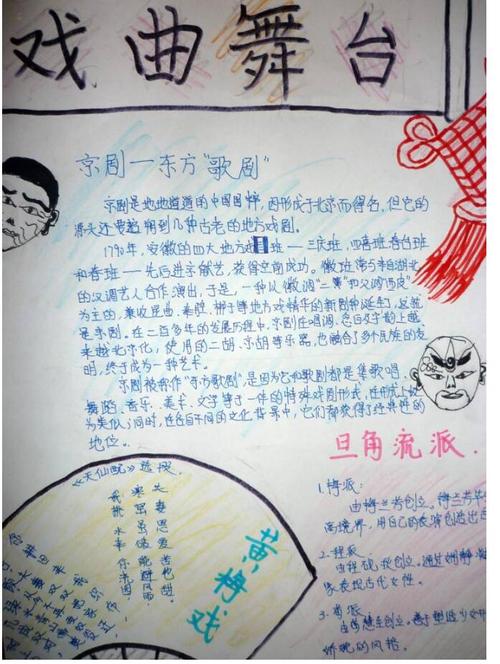 戏曲舞台
京剧—东方"歌剧"
京剧是地地道道的中国国粹，因形成于北京而得名，但它的
源头还要追溯到几种古老的地方戏剧。
1790年，安徽的四大地方戏班——三庆班、四喜班、春台班
和春班——先后进京献艺，获得空前成功。徽班常与来自湖北
的汉调艺人合作演出，于是，一种以徽调"二黄"和汉调"西皮"
为主的，兼收昆曲、秦腔、梆子等地方戏精华的新剧种诞生了，这就
是京剧。在二百多年的发展历程中，京剧在唱词、念白及字韵上越
来越北京化，使用的二胡、京胡等乐器，也融合了多个民族的发
明，终于成为一种艺术
京剧被称作"东方歌剧"，是因为它和歌剧都是集歌唱、
舞蹈、音乐、美术、文学等于一体的特殊戏剧形式，在形式上极
为类似，同时，在各自不同的文化背景中，它们都获得了经典性的
地位。
旦角流派
1.梅派：
由梅兰芳创立。梅兰芳
境界，用自己的表演创造出
2.程派
由程砚秋创立。通过
象表现古代女性。
3.荀派
由荀慧生创立。善于塑造少女
娇昵的风格。
《天仙配》选段
黄梅戏
夫妻恩爱苦也甜
寒窑虽破能避风雨
我挑水来你浇园